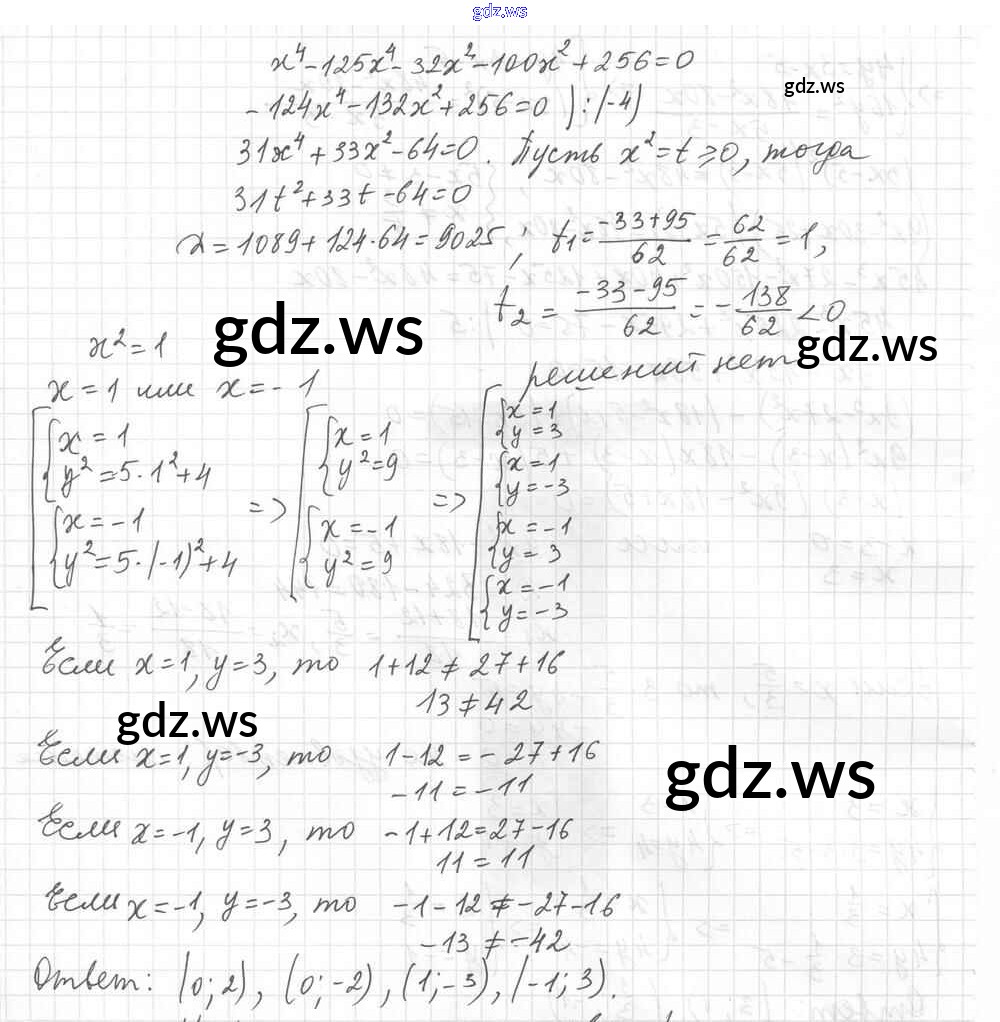 gdz.ws
x⁴-125x⁴-32x²-100x²+256=0
gdz.ws
-124x⁴-132x²+256=0 ):(-4)
31x⁴+33x²-64=0. Пусть x²=t≥0, тогда
31t²+33t-64=0
D=1089+124·64=9025; t₁=(-33+95)/62=62/62=1,
t₂=(-33-95)/62=-138/62<0
gdz.ws
gdz.ws
x²=1
решений нет
x=1 или x=-1
{x=1
{y²=5·1²+4
{x=-1
{y²=5·(-1)²+4
=>
{x=1
{y²=9
{x=-1
{y²=9
=>
{x=1
{y=3
{x=1
{y=-3
{x=-1
{y=3
{x=-1
{y=-3
Если x=1, y=3, то 1+12≠27+16
13≠42
gdz.ws
Если x=1, y=-3, то 1-12=-27+16
-11=-11
gdz.ws
Если x=-1, y=3, то -1+12=27-16
11=11
Если x=-1, y=-3, то -1-12≠-27-16
-13≠-42
Ответ: (0;2), (0;-2), (1;-3), (-1;3).